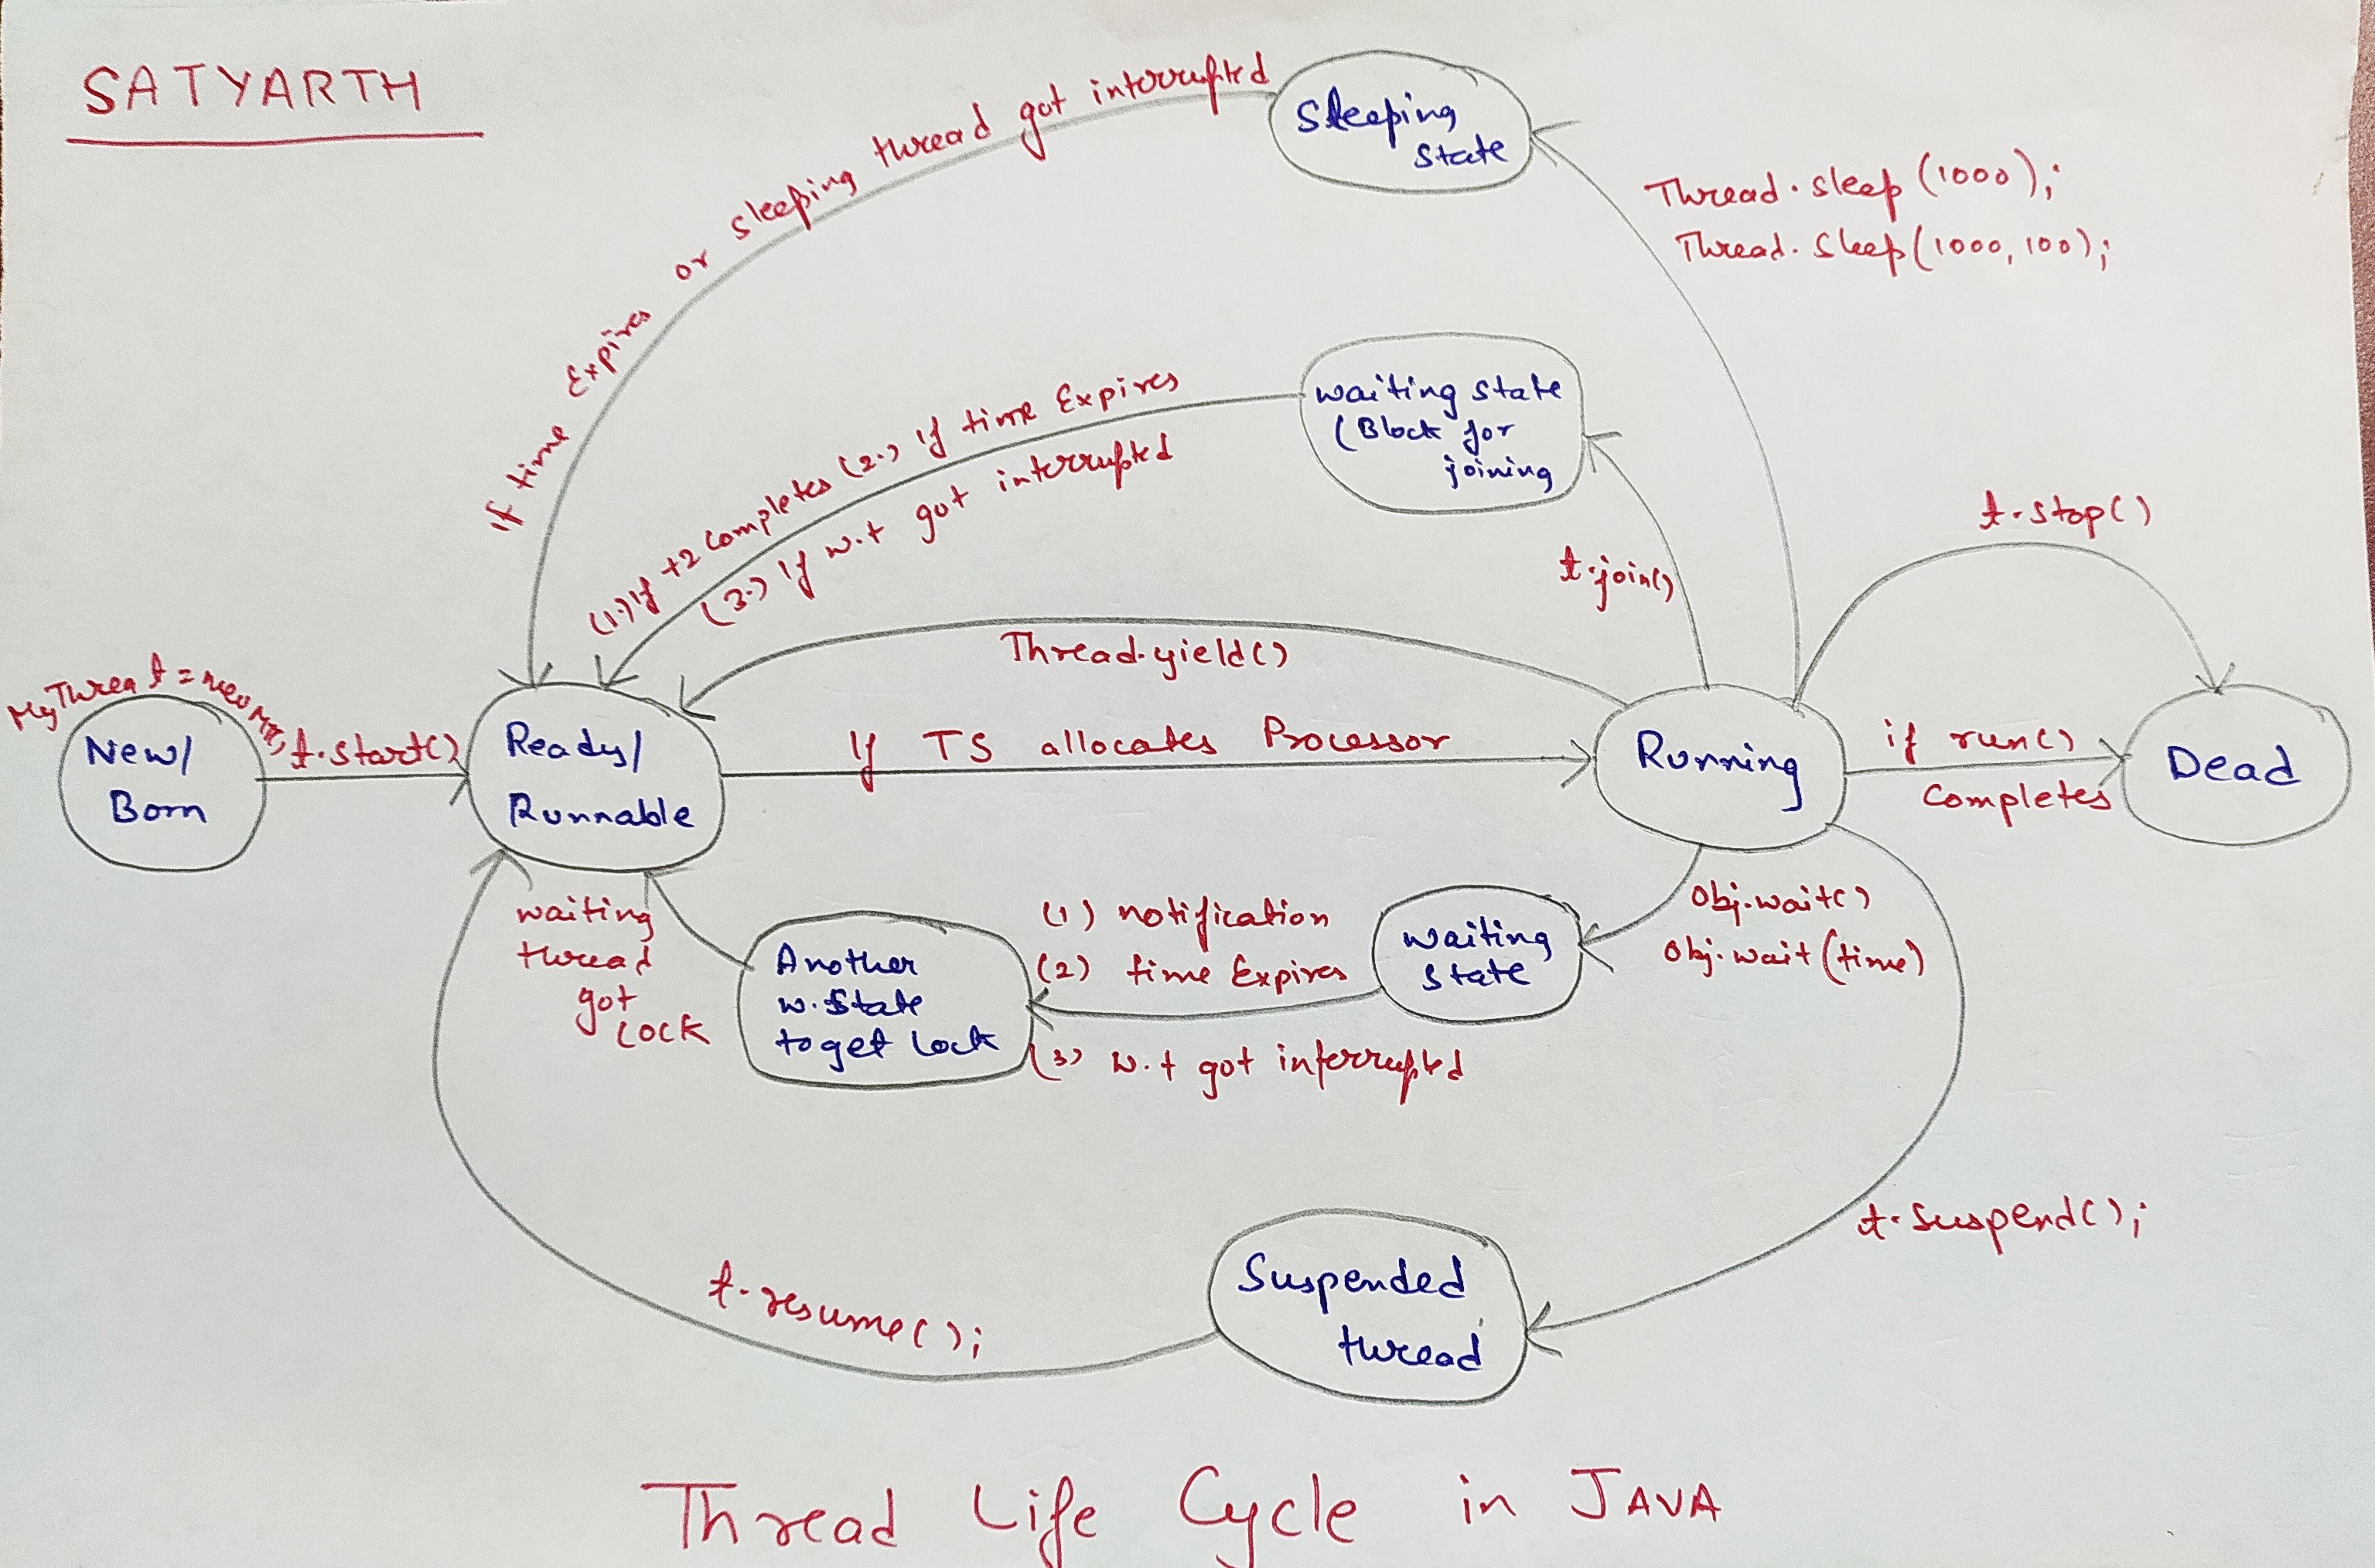 SATYARTH
Sleeping
State
If time Expires or sleeping thread got interrupted
Thread.sleep(1000);
Thread.sleep(1000,100);
waiting state
(Block for
joining
(1.) If t2 completes (2.) If time Expires
(3.) If w.t got interrupted
t.join()
t.stop()
Thread.yield()
MyThrea t = new
t.start()
New/
Born
Ready/
Runnable
If TS allocates Processor
Running
if run()
Completes
Dead
waiting
thread
got
LOCK
Another
w.State
to get Lock
(1) notification
(2) time Expires
(3) w.t got interrupted
waiting
State
Obj.wait()
Obj.wait(time)
t.suspend();
Suspended
thread
t.resume();
Thread Life Cycle in JAVA